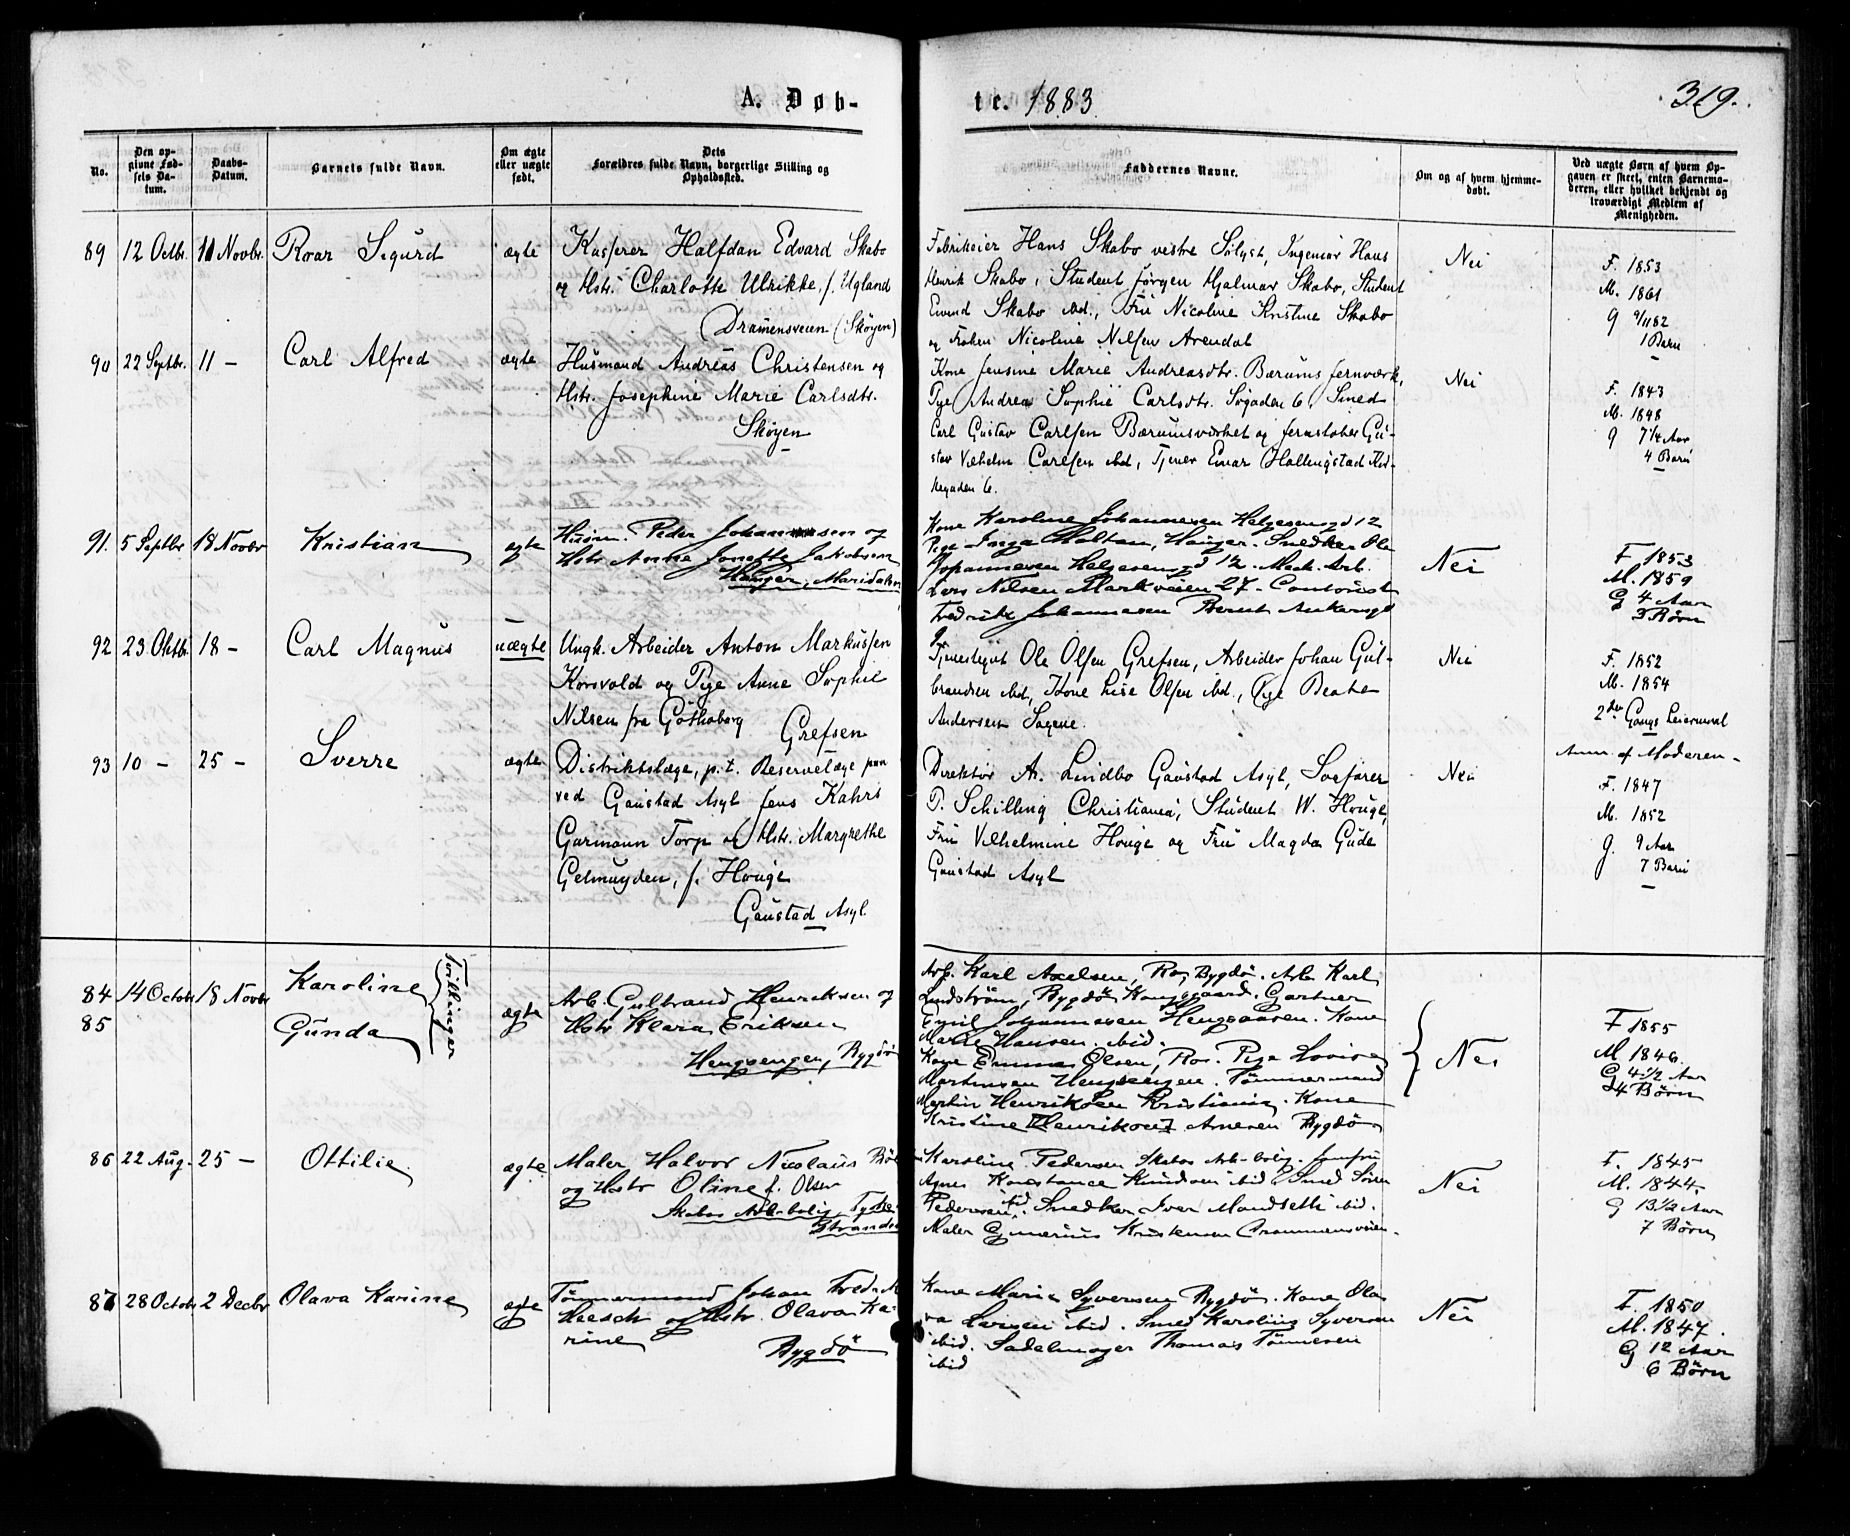 A. Døb-
te. 1883.
319.
No.
Den op-
givne Fød-
sels Da-
tum.
Daabs-
Datum.
Barnets fulde Navn.
Om ægte
eller uægte
født.
Dets
Forældres fulde Navn, borgerlige Stilling og
Opholdssted.
Faddernes Navne.
Om og af hvem hjemme-
døbt.
Ved uægte Børn af hvem Op-
gaven er skeet, enten Barnemo-
deren, eller hvilket bekjendt og
troværdigt Medlem af
Menigheden.
89 12 Octbr. 11 Novbr. Roar Sigurd ægte
Kasserer Halfdan Edvard Skabo
og Hstr. Charlotte Ulrikke, f. Ugland
Dramensveien (Skøyen)
Fabrikeier Hans Skabo vestre Sølyst, Ingeniør Hans
Henrik Skabo, Student Jørgen Hjalmar Skabo, Student
Eivind Skabo ibd., Fru Nicoline Kristine Skabo
og Frøken Nicoline Nilsen Arendal
Nei
F. 1853
M. 1861
G 9/11 82
1 Barn
90 22 Septbr. 11 - Carl Alfred ægte
Husmand Andreas Christensen og
Hstr. Josephine Marie Carlsdtr.
Skøyen
Kone Jensine Marie Andreasdtr. Bærums Jernværk,
Pige Andrea Sophie Carlsdtr. Søgaden 6, Smed
Carl Gustav Carlsen Bærumsværket og Jernstøber Gu-
stav Vilhelm Carlsen ibd, Tjener Einar Hallingstad Kir-
kegaden 6.
Nei
F. 1843
M. 1848
G 7 1/4 Aar
4 Barn
91. 5 Septbr 18 Novbr Kristian ægte
Husm. Peder Johannesen og
Hstr Anne Jonette Jakobsen
Hauger, Maridalen
Kone Karoline Johannesen Helgesensgd 12
Pige Inga Holtan, Hauger. Snedker Ole
Johannesen Helgesensgd 12. Mek. Arb.
Lars Nilsen Markveien 27 - Contorist
Fredrik Johannesen Bernt Ankersgd
9.
Nei
F 1853
M. 1859
G 4 Aar
3 Børn
92 23 Oktbr. 18 - Carl Magnus uægte
Ungk. Arbeider Anton Markussen
Korsvold og Pige Anne Sophie
Nilsen fra Gøthoborg
Grefsen
Tjenestegut Ole Olsen Grefsen, Arbeider Johan Gul-
brandsen ibd, Kone Lise Olsen ibd., Pige Beate
Andersen Sagene.
Nei
F. 1852
M. 1854
2den Gangs Leiermaal
Anm. af Moderen -
93 10 - 25 - Sverre ægte
Distriktslæge, p.t. Reservelæge
ved Gaustad Asyl Jens Kahrs
Garmann Torp og Hstr. Margrethe
Gelmuyden, f. Houge
Gaustad Asyl.
Direktør A. Lindbo Gaustad Asyl, Sagfører
T. Schilling Christiania, Student W. Houge,
Fru Vilhelmine Houge og Fru Magda Gude
Gaustad Asyl
Nei
F. 1847
M. 1852
G. 9 Aar
7 Barn
84 14 Octobr 18 Novbr Karoline
85 Gunda
Tvillinger
ægte
Arb. Gulbrand Henriksen og
Hstr Klara Eriksen
Hengsengen, Bygdø
Arb. Karl Axelsen, Ro, Bygdø. Arb Karl
Lindstrøm, Bygdø Kongsgaard. Gartner
Emil Johannesen Hengsaasen. Kone
Marie Hansen ibid.
Kone Emma Olsen, Ro. Pige Lovise
Martinsen Hengsengen. Tømmermand
Martin Henriksen Kristiania. Kone
Kristine Henriksen Arnesen Bygdø
Nei
F 1855
M 1846.
G 4 1/2 Aar
4 Børn
86 22 Aug. 25 - Ottilie ægte
Maler Halvor Nicolaus
og Hstr Oline f. Olsen
Skabos Arb-bolig,
Karoline Pedersen Skabos Arb-bolig. Jomfru
Agnes Konstance Knudsen ibid Smed Søren
Pedersen ibid, Snedker Iver Mandseth ibid.
Maler Kristensen Drammensveien.
Nei
F. 1845
M. 1844.
G 13 1/2 Aar
7 Børn
87 28 Octobr 2 Decbr Olava Karine ægte
Tømmermand Johan Fredrik
Heesch og Hstr. Olava Ka-
rine
Bygdø
Kone Maria Syversen Bygdø. Kone Ola-
va Larsen ibid. Smed Karolius Syversen
ibid. Sadelmager Thomas Tønnesen
ibid
Nei
F. 1850
M. 1847.
G 12 Aar
6 Børn